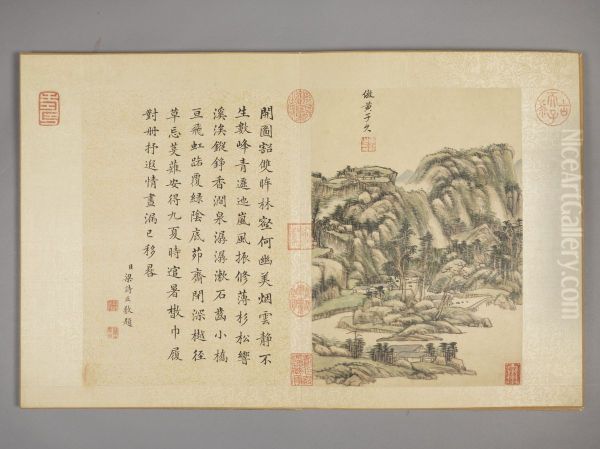 倣黃子久
開圖豁雙眸林壑何幽美烟雲靜不
生數峰青邐迤嵐風振修薄杉松響
溪涘鏦錚香澗泉潺潺漱石齒小橋
亘飛虹踏覆綠陰底茆齋閉深樾徑
草忘芟薙安得九夏時逭暑檥巾履
對冊抒遐情晝漏已移晷
臣梁詩正敬題
NiceArtGallery.com